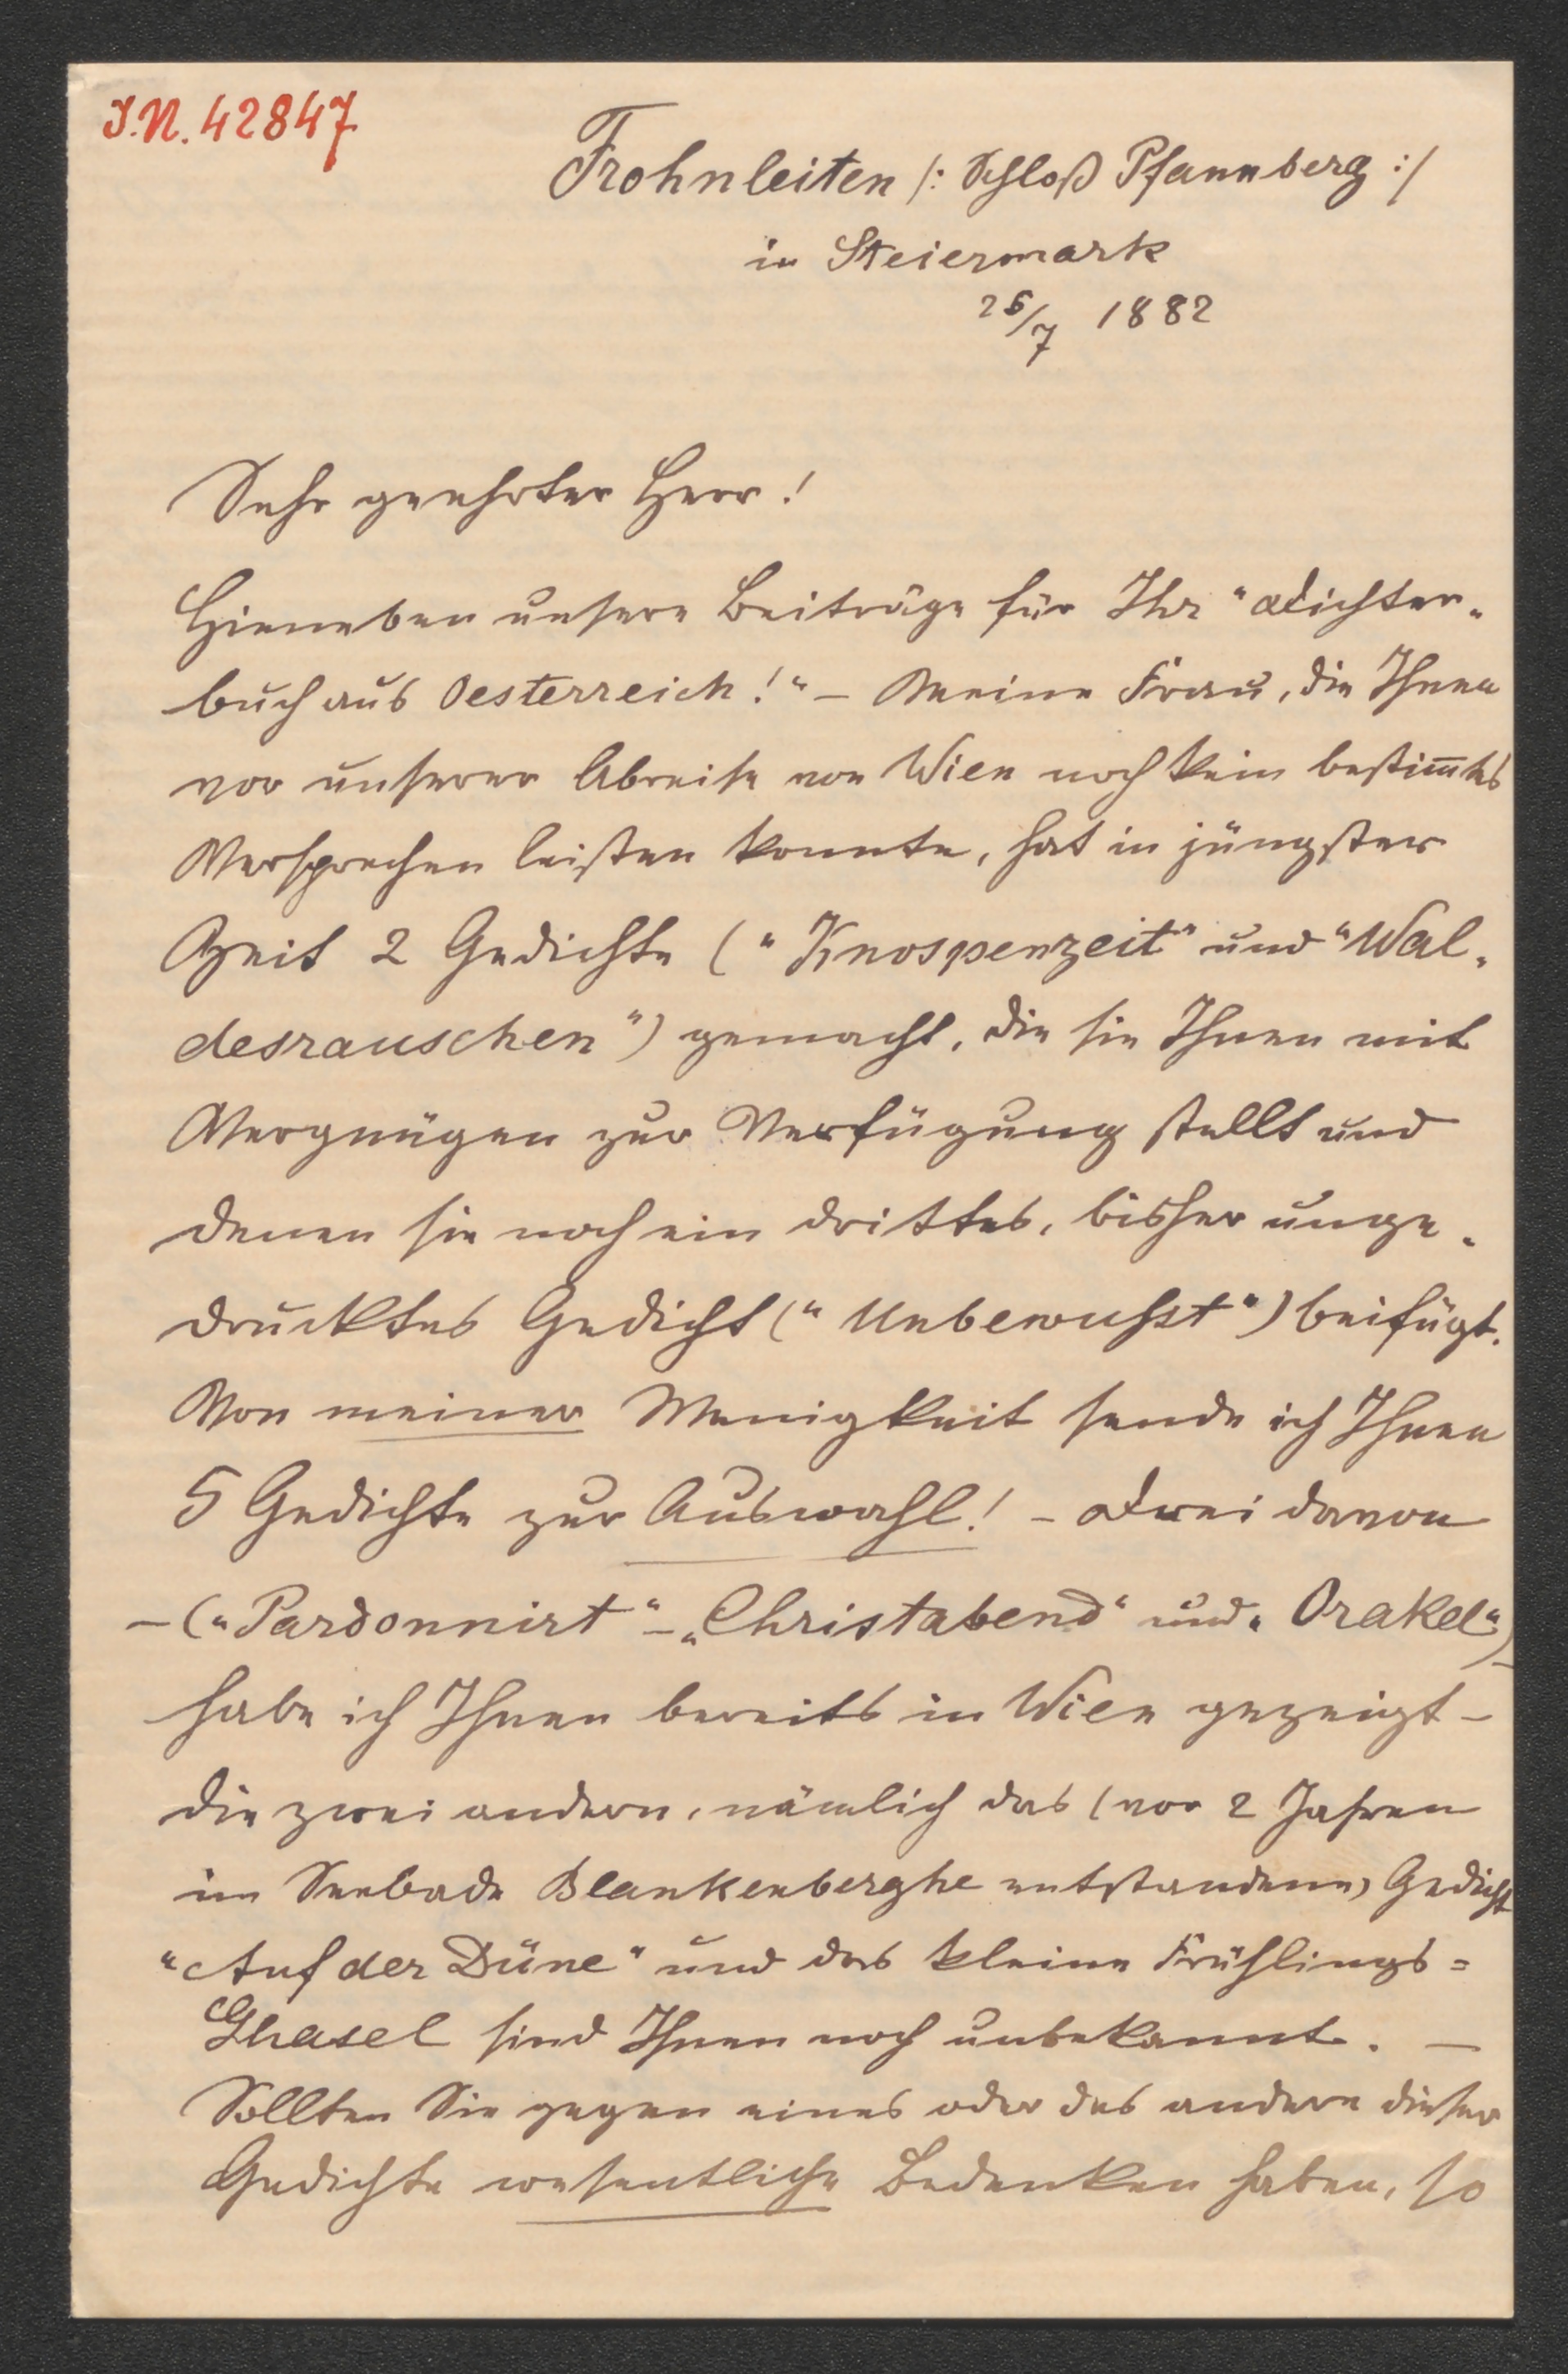 I.N. 42847
Frohnleiten /: Schloß Pfannberg :/
in Steiermark
26/7 1882
Sehr geehrter Herr!
Hieneben unsere Beiträge für Ihr "Dichter-
buch aus Oesterreich!" – Meine Frau, die Ihnen
vor unserer Abreise von Wien noch kein bestim̅tes
Versprechen leisten konnte, hat in jüngster
Zeit 2 Gedichte ("Knospenzeit" und "Wal-
desrauschen") gemacht, die sie Ihnen mit
Vergnügen zur Verfügung stellt und
denen sie noch ein drittes, bisher unge-
drucktes Gedicht ("Unbewußt") beifügt.
Von meiner Wenigkeit sende ich Ihnen
5 Gedichte zur Auswahl! – Drei davon
– ("Pardonnirt" – "Christabend" und "Orakel") –
habe ich Ihnen bereits in Wien gezeigt –
die zwei andern, nämlich das (vor 2 Jahren
im Seebade Blankenberghe entstandene) Gedicht
"Auf der Düne" und das kleine Frühlings=
Ghasel sind Ihnen noch unbekannt. —
Sollten Sie gegen eines oder das andere dieser
Gedichte wesentliche Bedenken haben, so